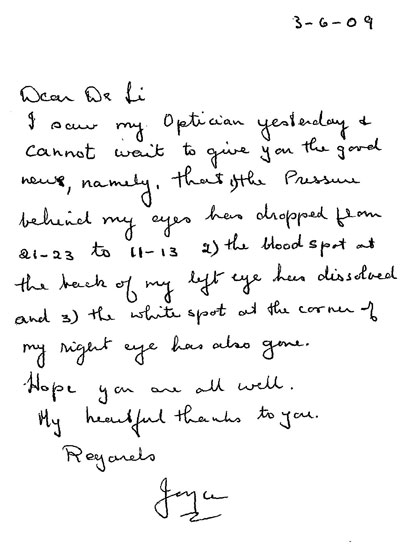 3-6-09
Dear Dr Li
I saw my Optician yesterday &
cannot wait to give you the good
news, namely, that 1) the Pressure
behind my eyes has dropped from
21-23 to 11-13 2) the blood spot at
the back of my left eye has dissolved
and 3) the white spot at the corner of
my right eye has also gone.
Hope you are all well.
My heartful thanks to you.
Regards
Joyce